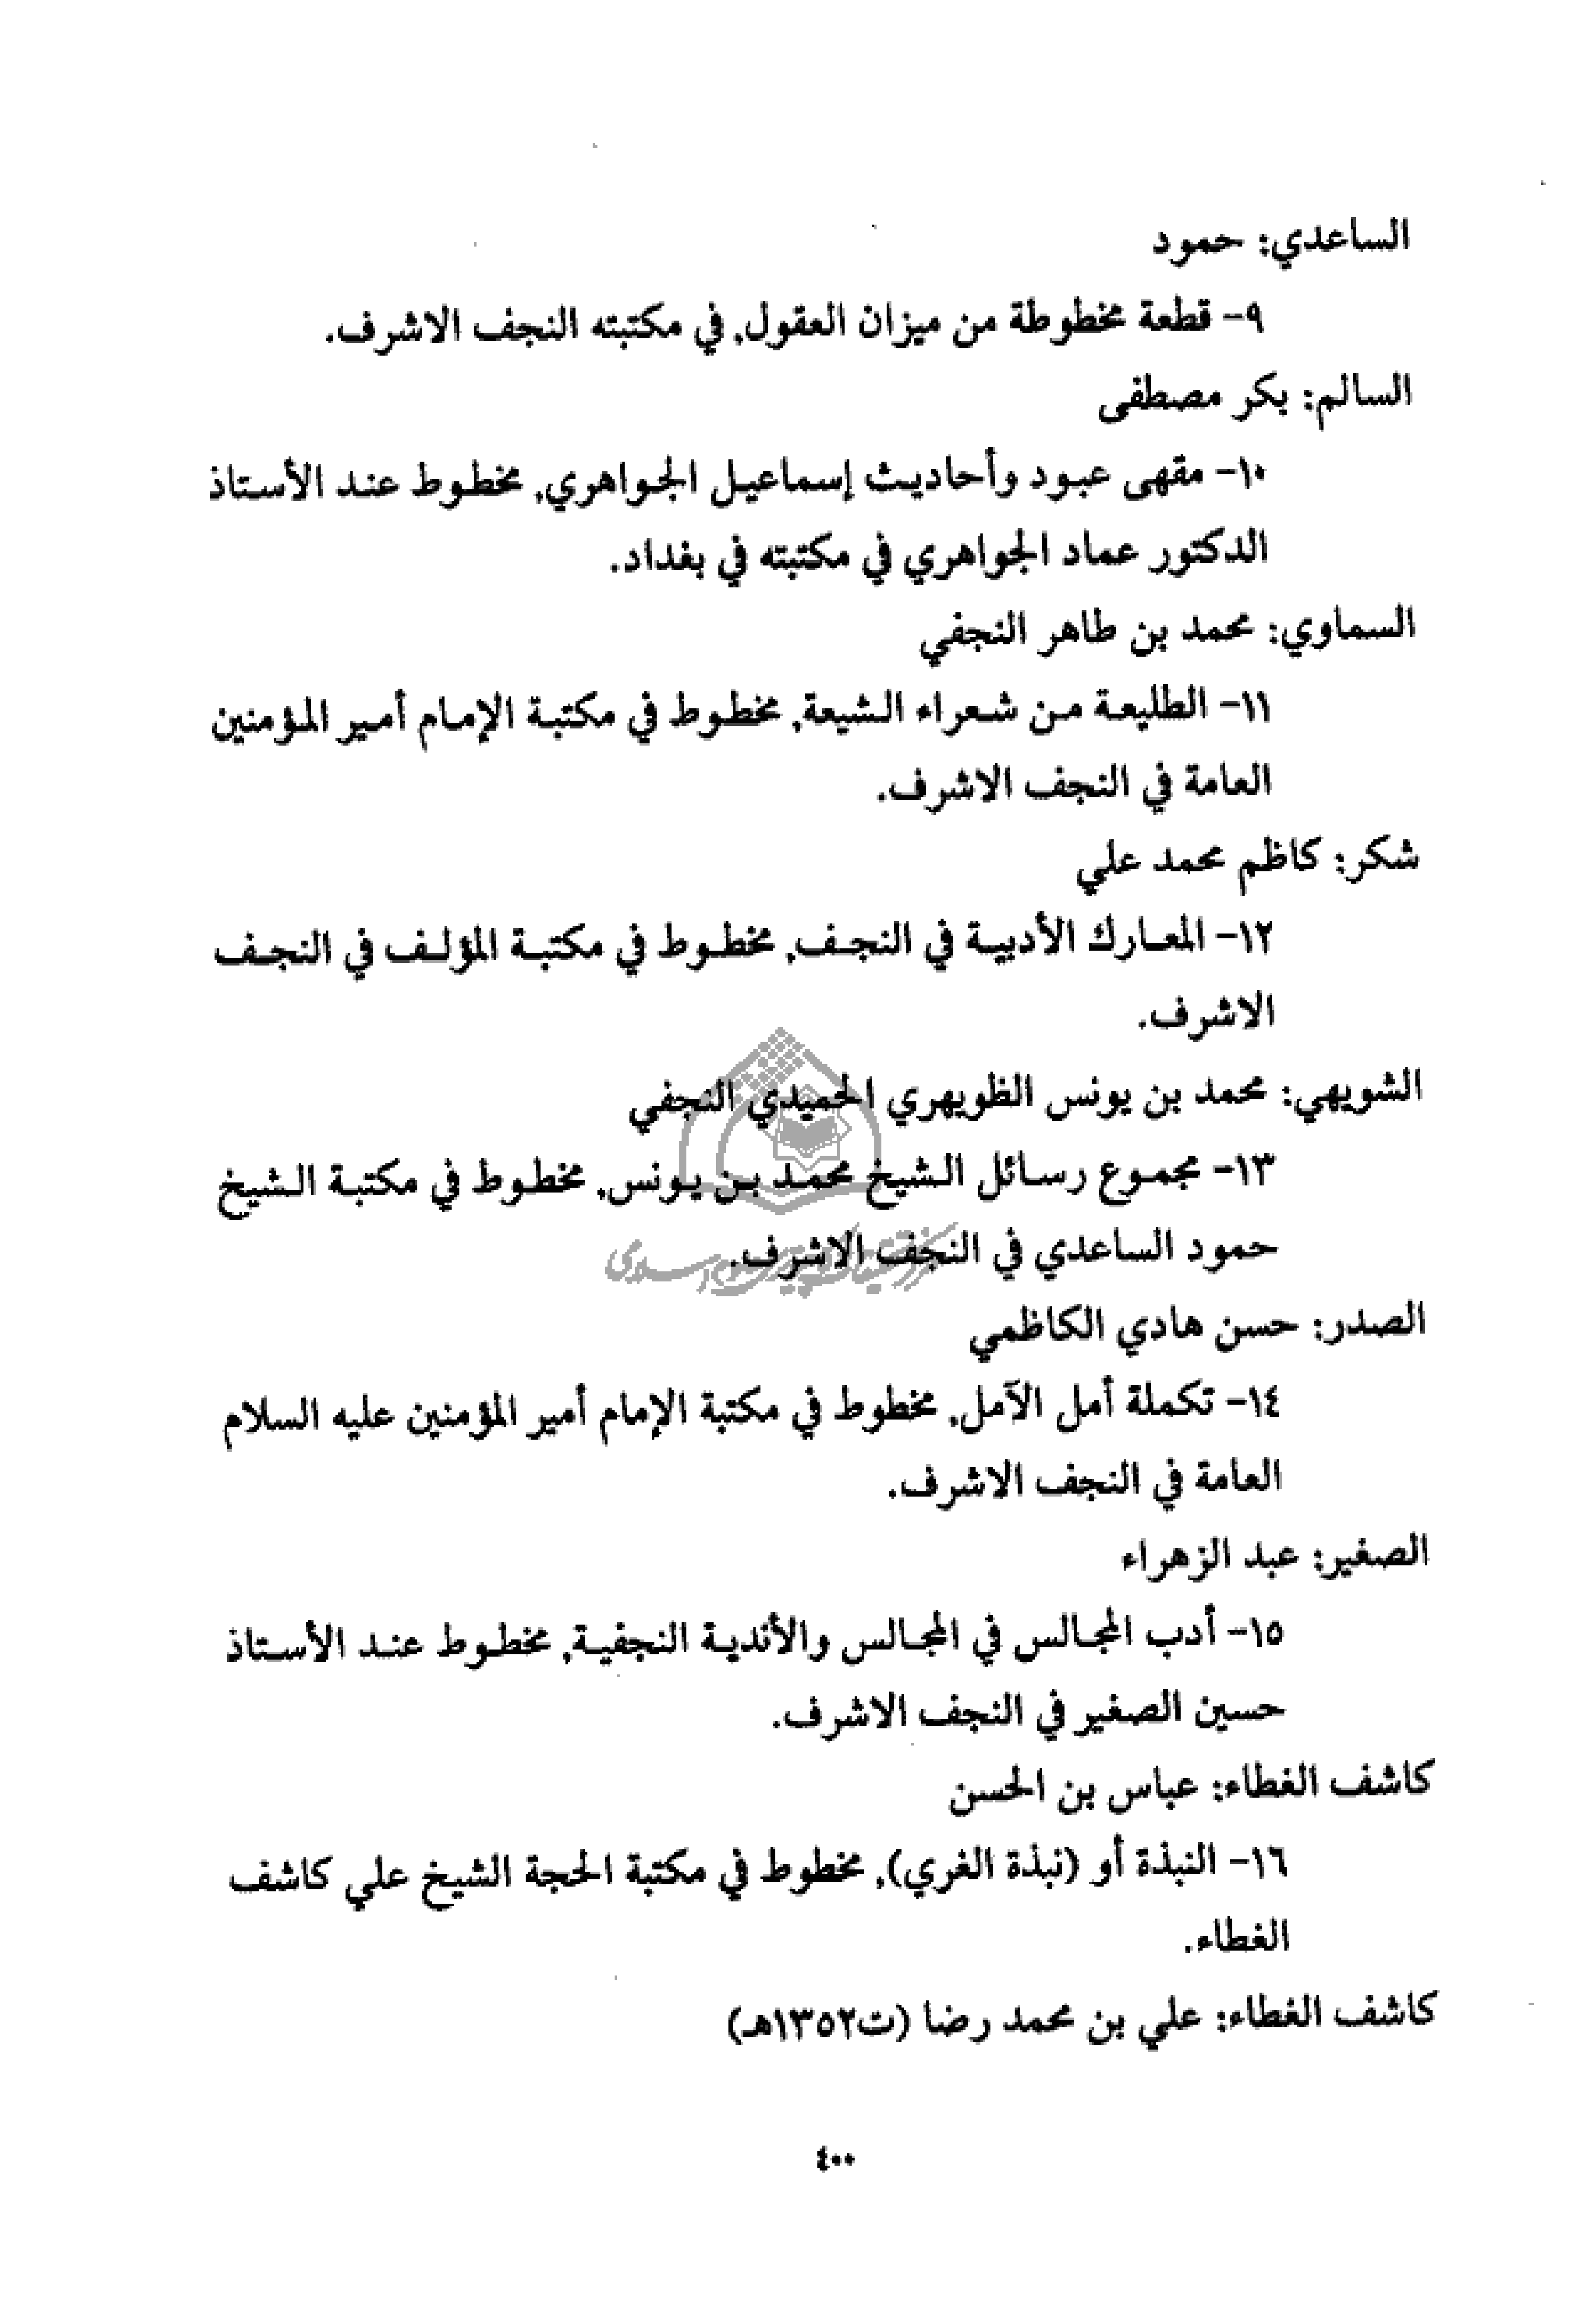 الساعدي: حمود
٩- قطعة مخطوطة من ميزان العقول, في مكتبته النجف الاشرف.
السالم: بكر مصطفى
١٠- مقهى عبود وأحاديث إسماعيل الجواهري, مخطوط عند الأستاذ
الدكتور عماد الجواهري في مكتبته في بغداد.
السماوي: محمد بن طاهر النجفي
١١- الطليعة من شعراء الشيعة, مخطوط في مكتبة الإمام أمير المؤمنين
العامة في النجف الاشرف.
شكر: كاظم محمد علي
١٢- المعارك الأدبية في النجف, مخطوط في مكتبة المؤلف في النجف
الاشرف.
الشويهي: محمد بن يونس الظويهري الحميدي النجفي
١٣- مجموع رسائل الشيخ محمد بن يونس, مخطوط في مكتبة الشيخ
حمود الساعدي في النجف الاشرف.
الصدر: حسن هادي الكاظمي
١٤- تكملة أمل الآمل, مخطوط في مكتبة الإمام أمير المؤمنين عليه السلام
العامة في النجف الاشرف.
الصغير: عبد الزهراء
١٥- أدب المجالس في المجالس والأندية النجفية, مخطوط عند الأستاذ
حسين الصغير في النجف الاشرف.
كاشف الغطاء: عباس بن الحسن
١٦- النبذة أو (نبذة الغري), مخطوط في مكتبة الحجة الشيخ علي كاشف
الغطاء.
كاشف الغطاء: علي بن محمد رضا (ت١٣٥٢هـ)
٤٠٠